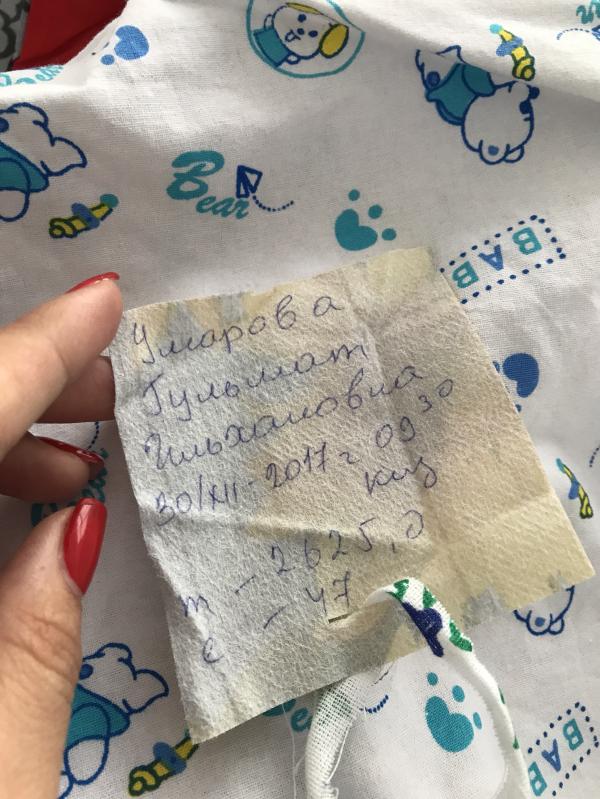 Bear
BAB
Умарова
Гульмат
Ильхановна
30/XII - 2017 г 09 30
киз
m - 2625,0
с - 47
BAB